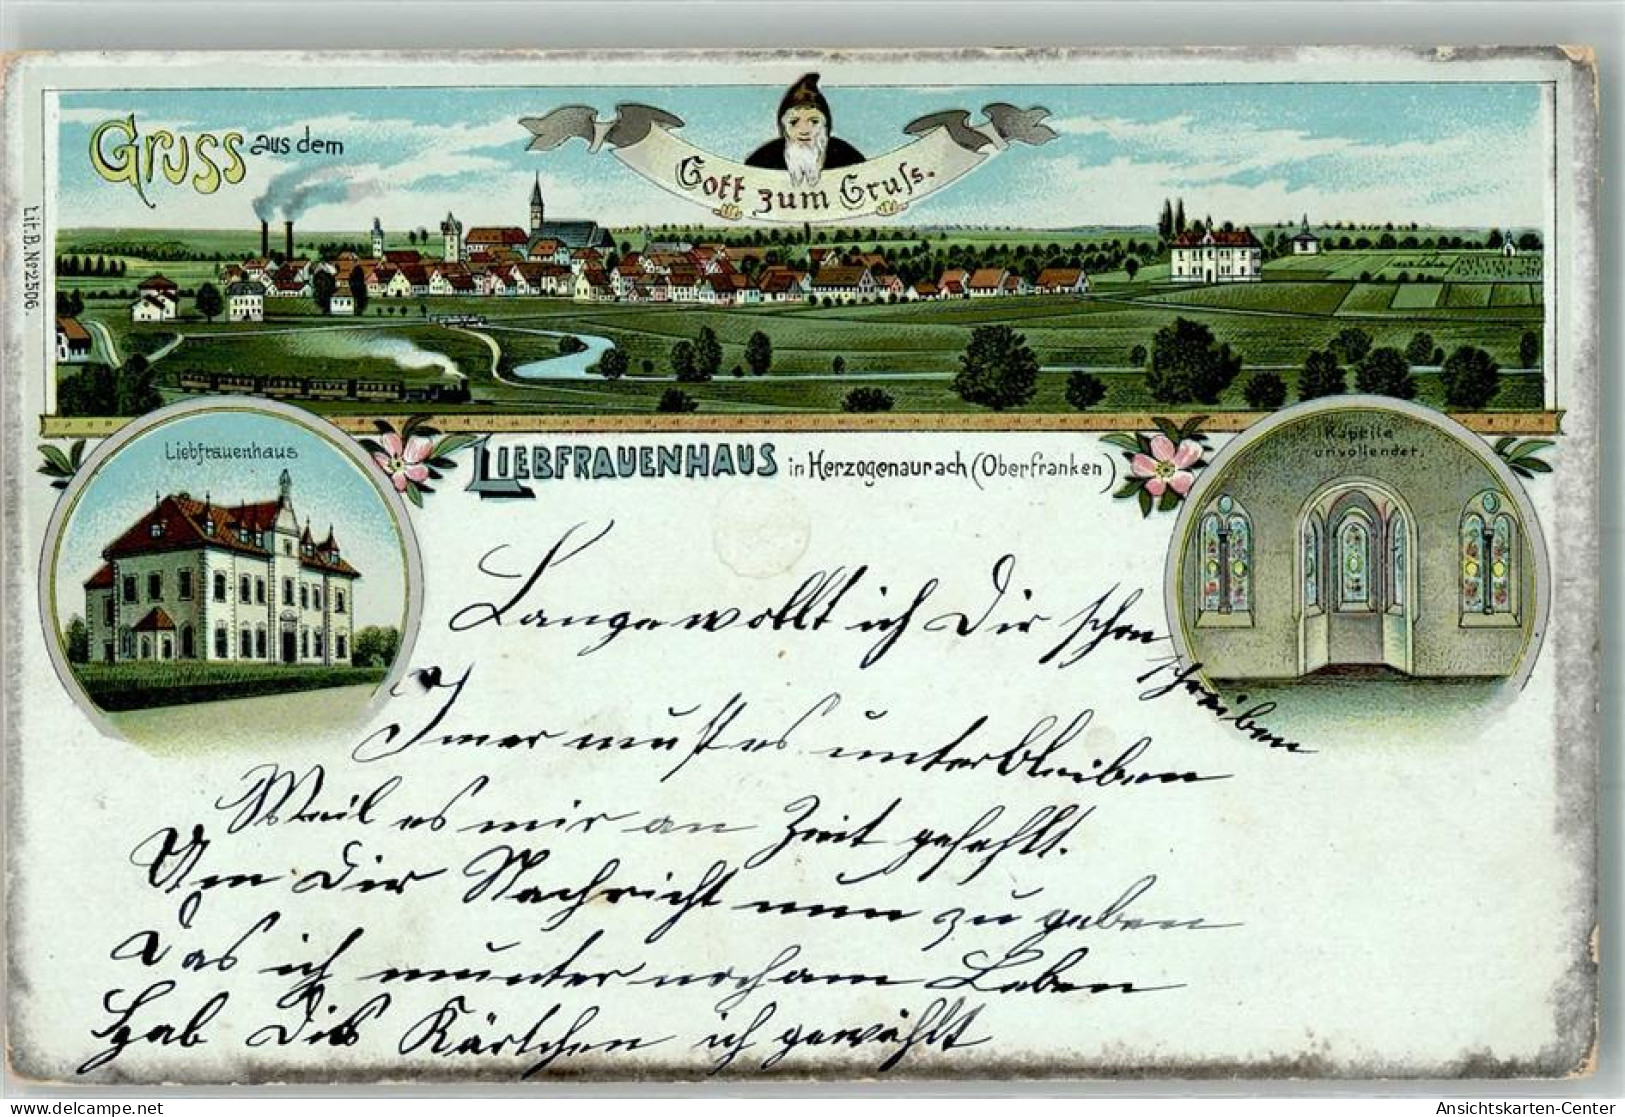 Gruss aus dem
Gott zum Gruss.
Lit. B. No 2506.
Liebfrauenhaus
LIEBFRAUENHAUS in Herzogenaurach (Oberfranken)
Kapelle
unvollendet.
Lange wollt ich Dir schon schreiben
Imer must es unterbleiben
Weil es mir an Zeit gefehlt.
Um Dir Nachricht nun zu geben
Das ich munter noch am Leben
Hab Dies Kärtchen ich gewählt
www.Ansichtskarten-Center